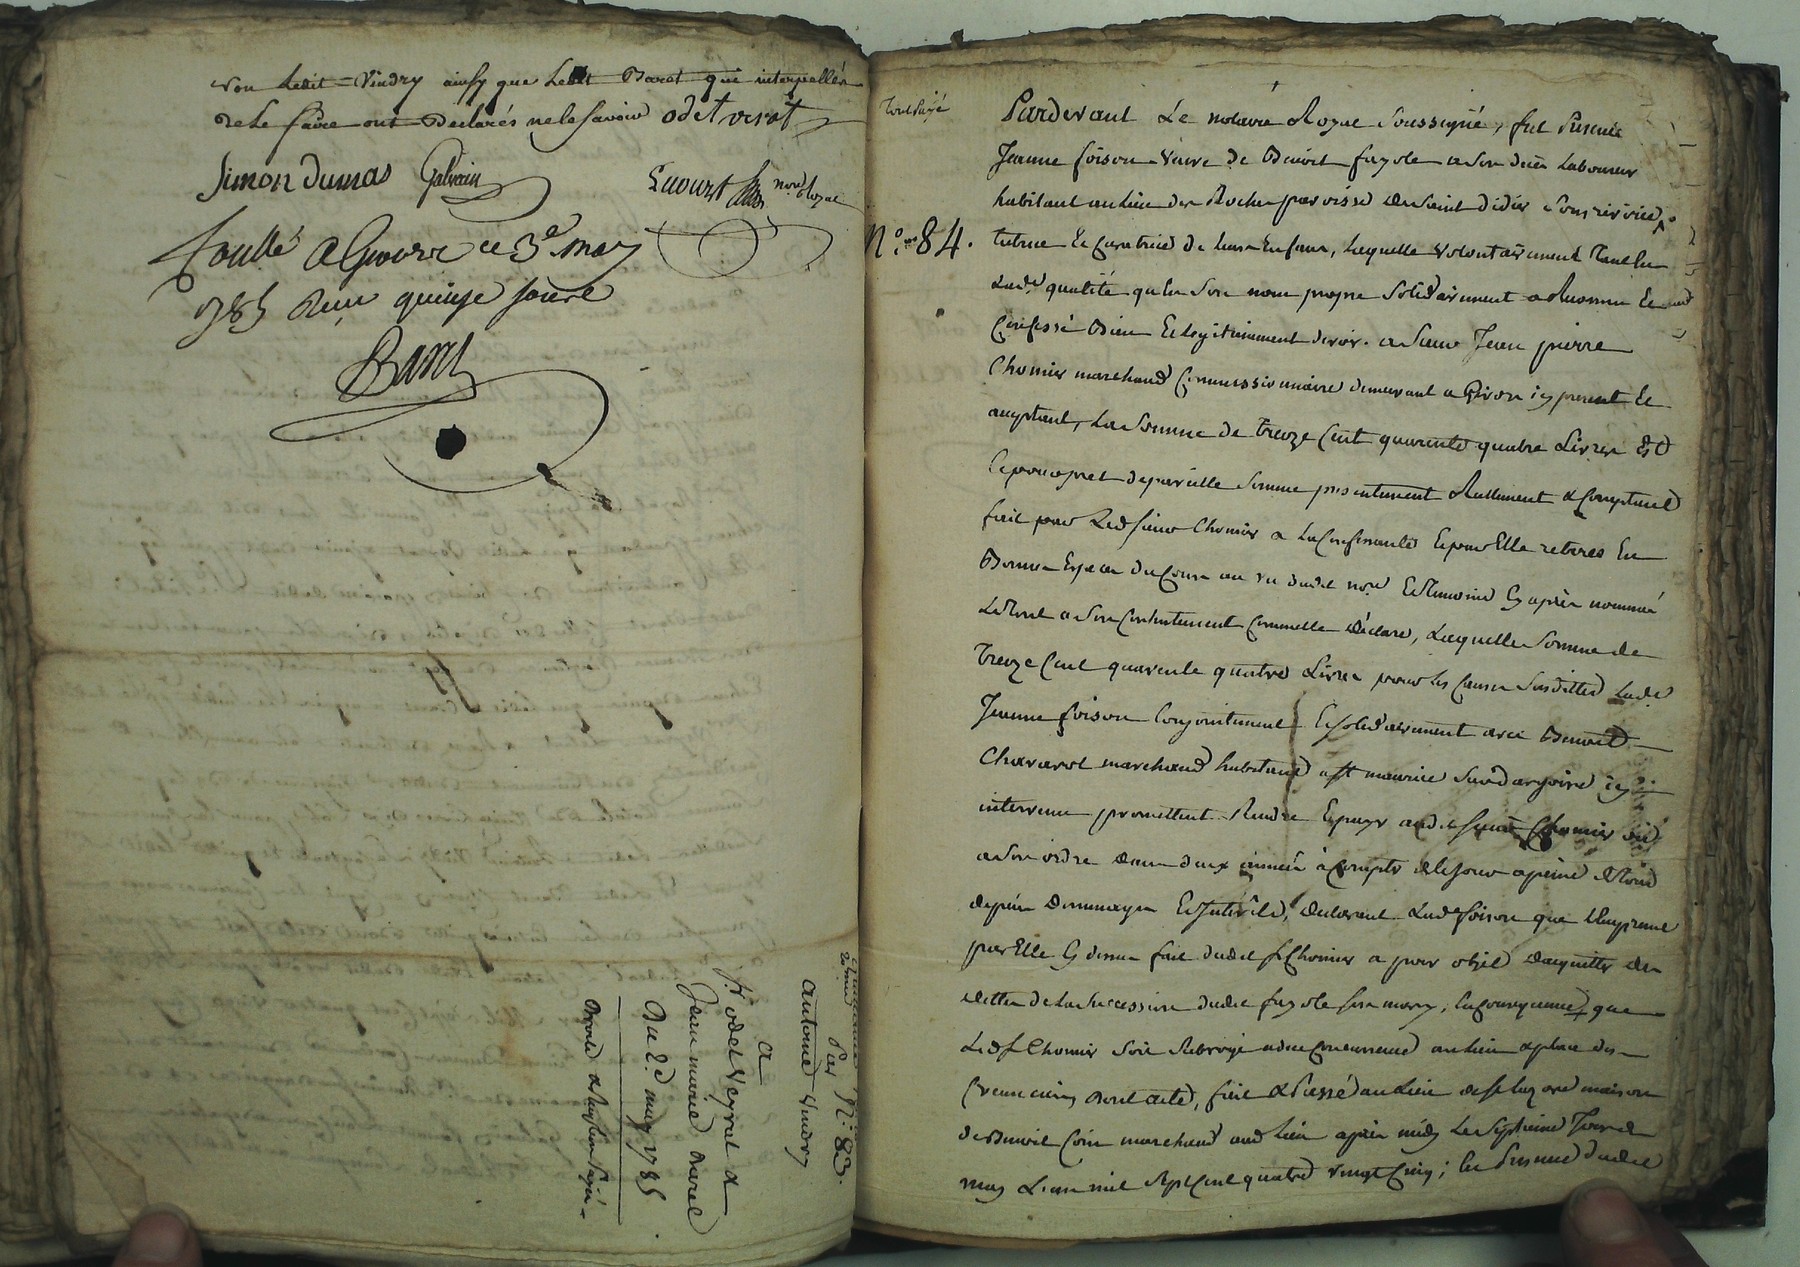 non ledit Vindry ainsy que ledit Barat que interpellés
de le faire ont declarés ne le savoir odet verat
Simon dumas Galvain
Lacourt nore Royal
Conllé a Givors ce 3e may
1785 Reçu quinze sous
Barel
quittance No 83.
Par
Antoine Vindry
a
Sr odet Veyrat &
Jean marie Barel
Du 2d may 1785
Tout Payé
No. 84.
Pardevant Le notaire Royal soussigné, fut Presente
Jeanne foison veuve de Benoit fayole a son deces Laboureur
habitant au lieu des Roches paroisse de saint didier sous riverie,
tutrice et curatrice de leurs Enfans, Laquelle volontairement tant en
lad. qualité qu'en son nom propre solidairement a Reconnu et
Confessé bien et legitimement devoir a sieur Jean pierre
Chomier marchand Commissionnaire demeurant a Givors icy present et
acceptant, La somme de treize cent quarante quatre Livres
et pour pret de pareille somme presentement Réellement & Comptant
fait par Led sieur Chomier a la Confessante et par Elle retirés En
Bonnes Especes du Cours au vu dudit nore et temoins cy après nommés
Le tout a son Contentement Comme elle declare, Laquelle somme de
treize Cent quarante quatre Livres pour les Causes susdittes Lade
Jeanne foison Conjointement et solidairement avec Benoit
Chavarot marchand habitant a st maurice sur dargoire icy
intervenu promettent Rendre et payer audit sieur Chomier ou
a son ordre dans deux années à Compter de ce jour a peine de tous
depens dommages et Intérêts, declarant Lade foison que l'Emprunt
par Elle cy dessus fait dudit sr Chomier a pour objet d'acquitter des
dettes de la succession dudit fayole son mary, En Consequence, que
Led sr Chomier soit subrogé a due Concurrence au lieu & place des
Creanciers dont acte, fait & Passé au Lieu de maison
de Benoit Coin marchand aud Lieu après midy Le septieme Jour de
may L'an mil sept Cent quatre vingt Cinq; En Presence dudit